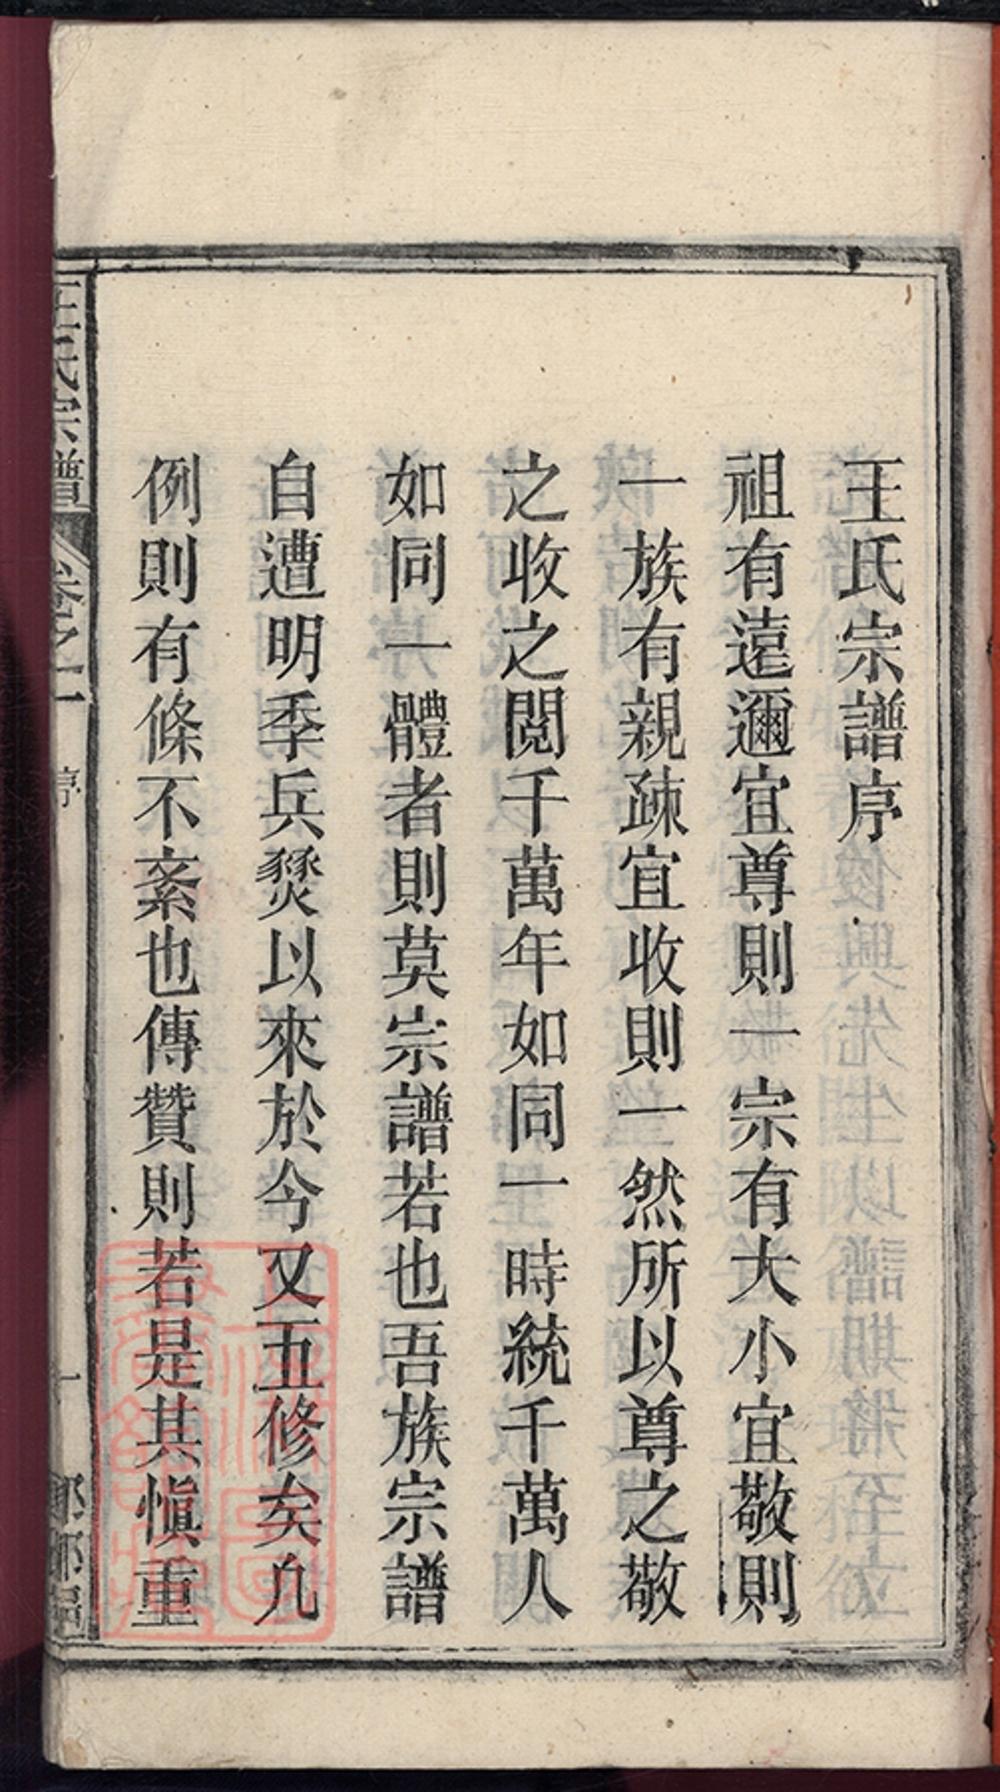 王氏宗譜序
祖有遠邇宜尊則一宗有大小宜敬則
一族有親疎宜收則一然所以尊之敬
之收之閱千萬年如同一時統千萬人
如同一體者則莫宗譜若也吾族宗譜
自遭明季兵燹以來於今又五修矣凢
例則有條不紊也傳贊則若是其慎重
王氏宗譜
卷之一
序
一